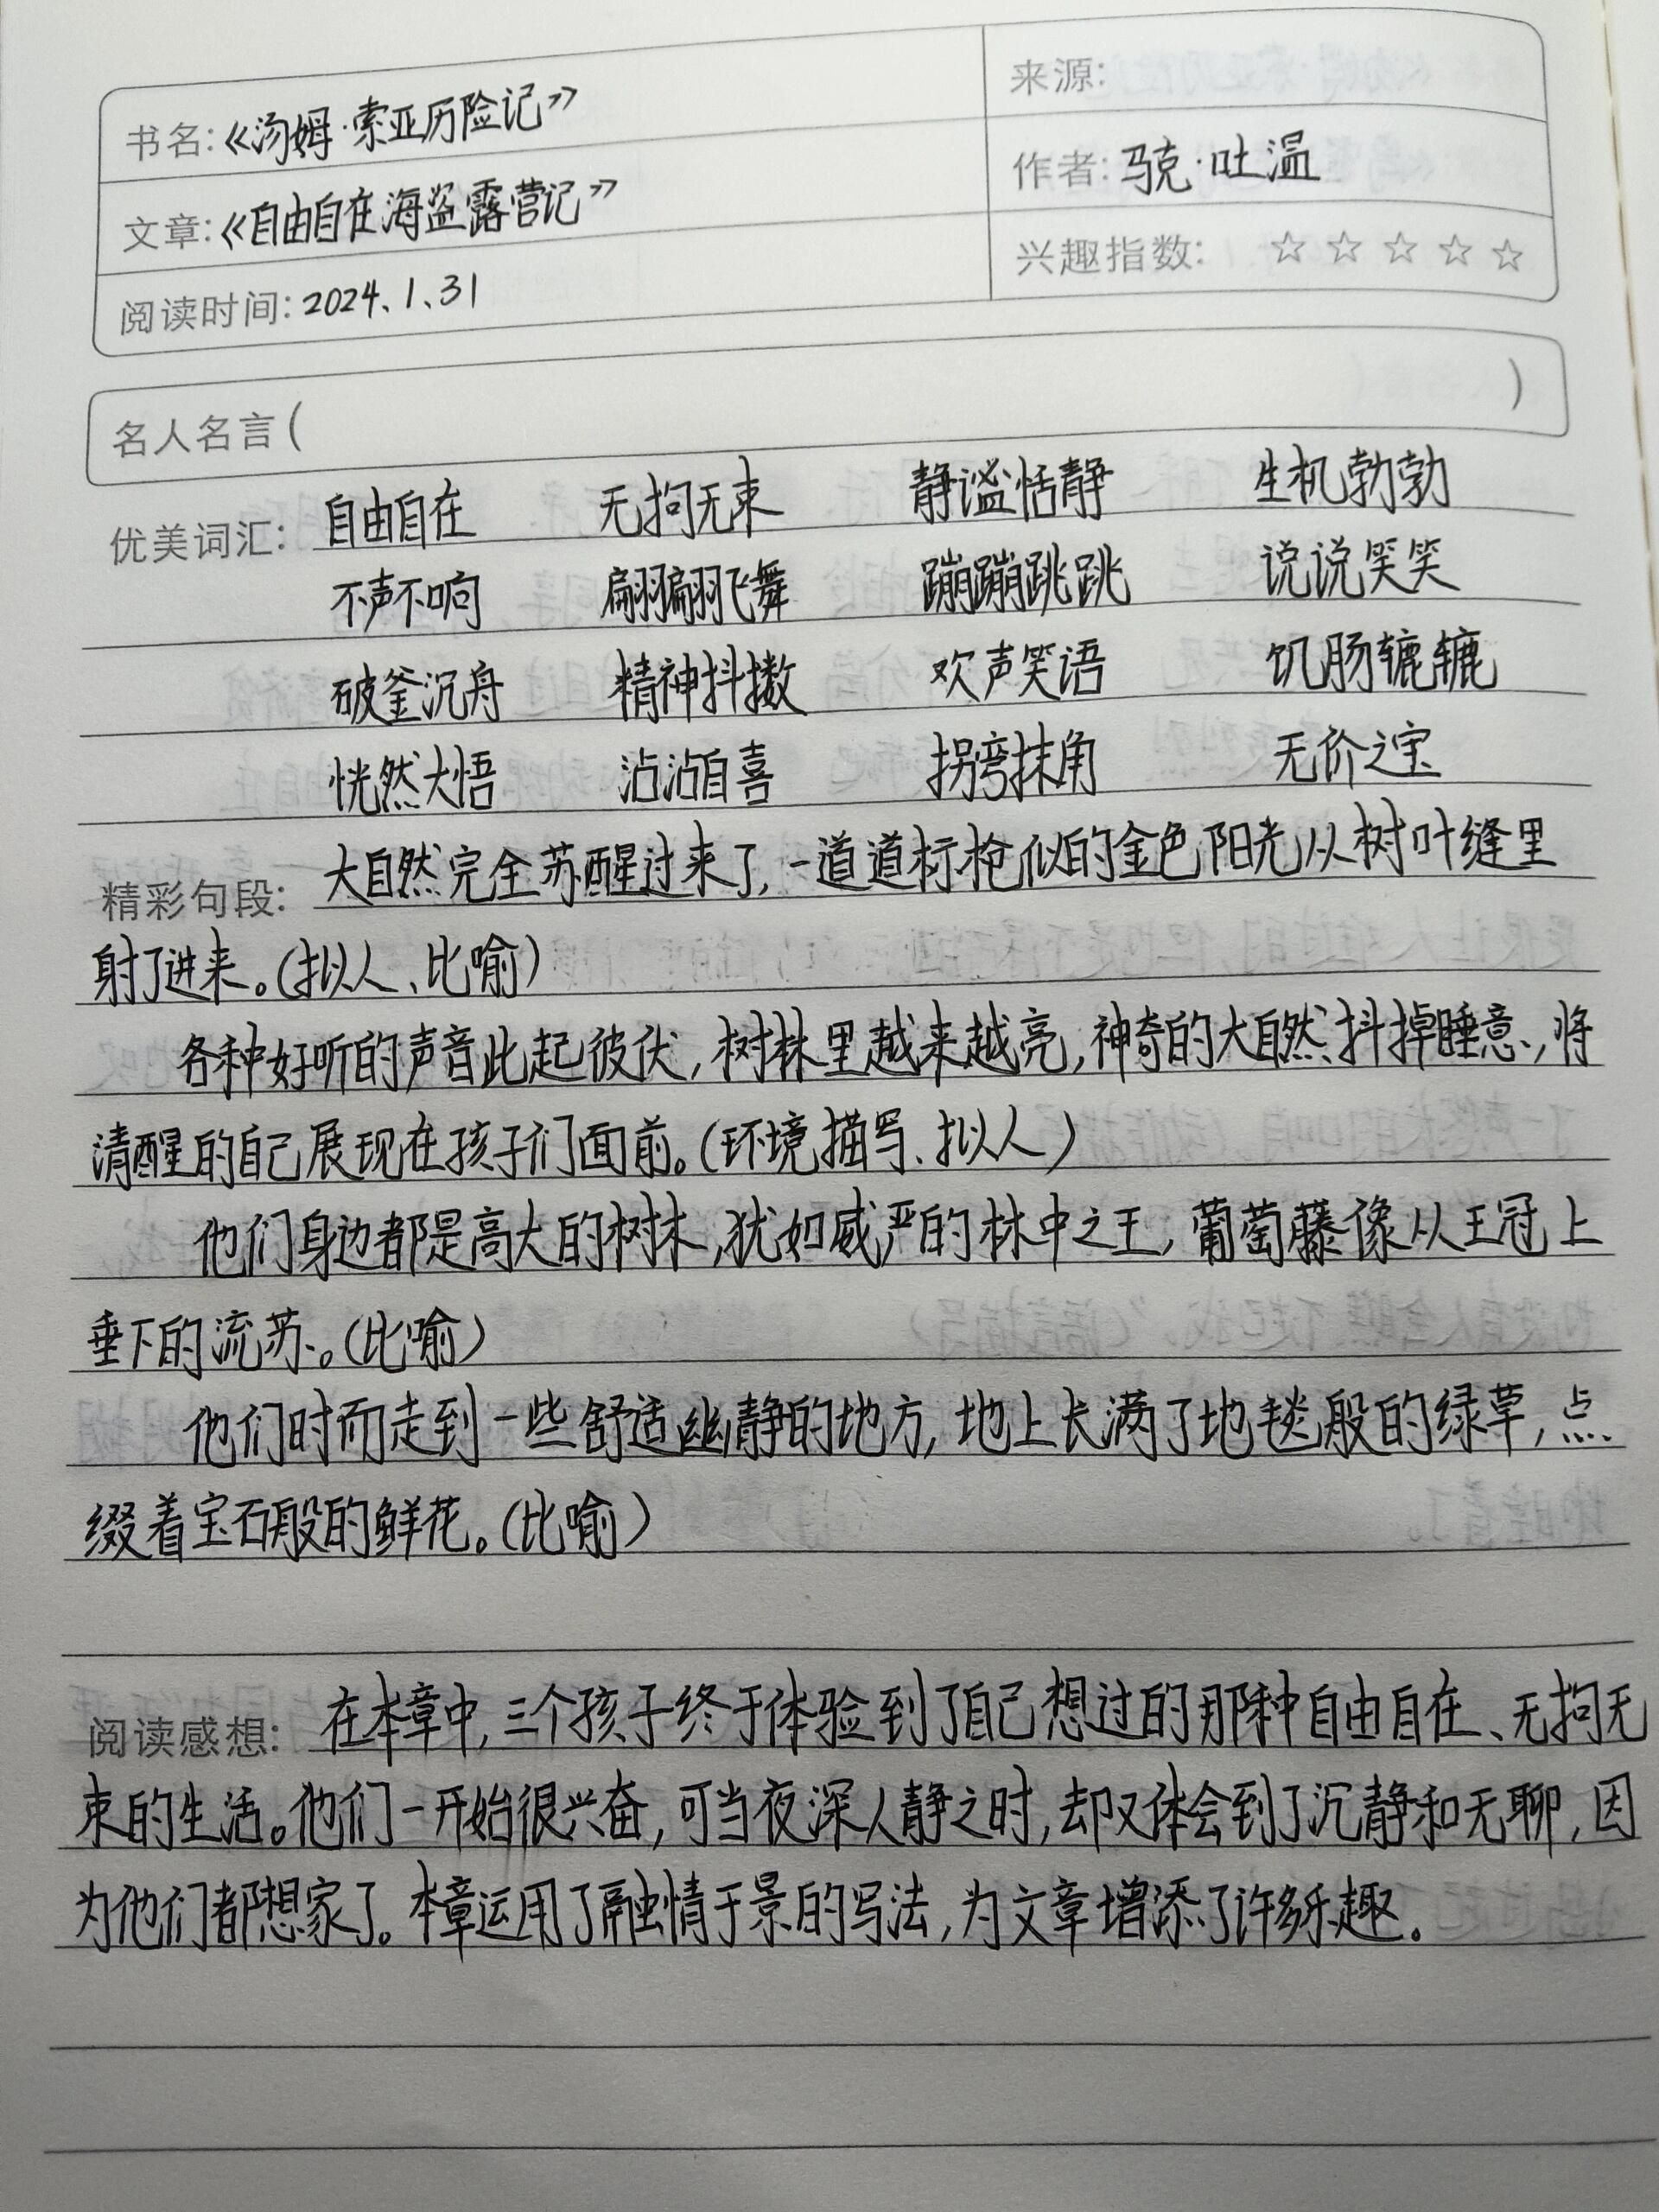 书名:《汤姆·索亚历险记》
来源:
文章:《自由自在海盗露营记》
作者:马克·吐温
阅读时间:2024、1、31
兴趣指数: ☆ ☆ ☆ ☆ ☆
名人名言( )
优美词汇: 自由自在 无拘无束 静谧恬静 生机勃勃
不声不响 翩翩飞舞 蹦蹦跳跳 说说笑笑
破釜沉舟 精神抖擞 欢声笑语 饥肠辘辘
恍然大悟 沾沾自喜 拐弯抹角 无价之宝
精彩句段: 大自然完全苏醒过来了,一道道标枪似的金色阳光从树叶缝里
射了进来。(拟人、比喻)
各种好听的声音此起彼伏,树林里越来越亮,神奇的大自然抖掉睡意,将
清醒的自己展现在孩子们面前。(环境描写、拟人)
他们身边都是高大的树木,犹如威严的林中之王,葡萄藤像从王冠上
垂下的流苏。(比喻)
他们时而走到一些舒适幽静的地方,地上长满了地毯般的绿草,点
缀着宝石般的鲜花。(比喻)
阅读感想: 在本章中,三个孩子终于体验到了自己想过的那种自由自在、无拘无
束的生活。他们一开始很兴奋,可当夜深人静之时,却又体会到了沉静和无聊,因
为他们都想家了。本章运用了融情于景的写法,为文章增添了许多乐趣。